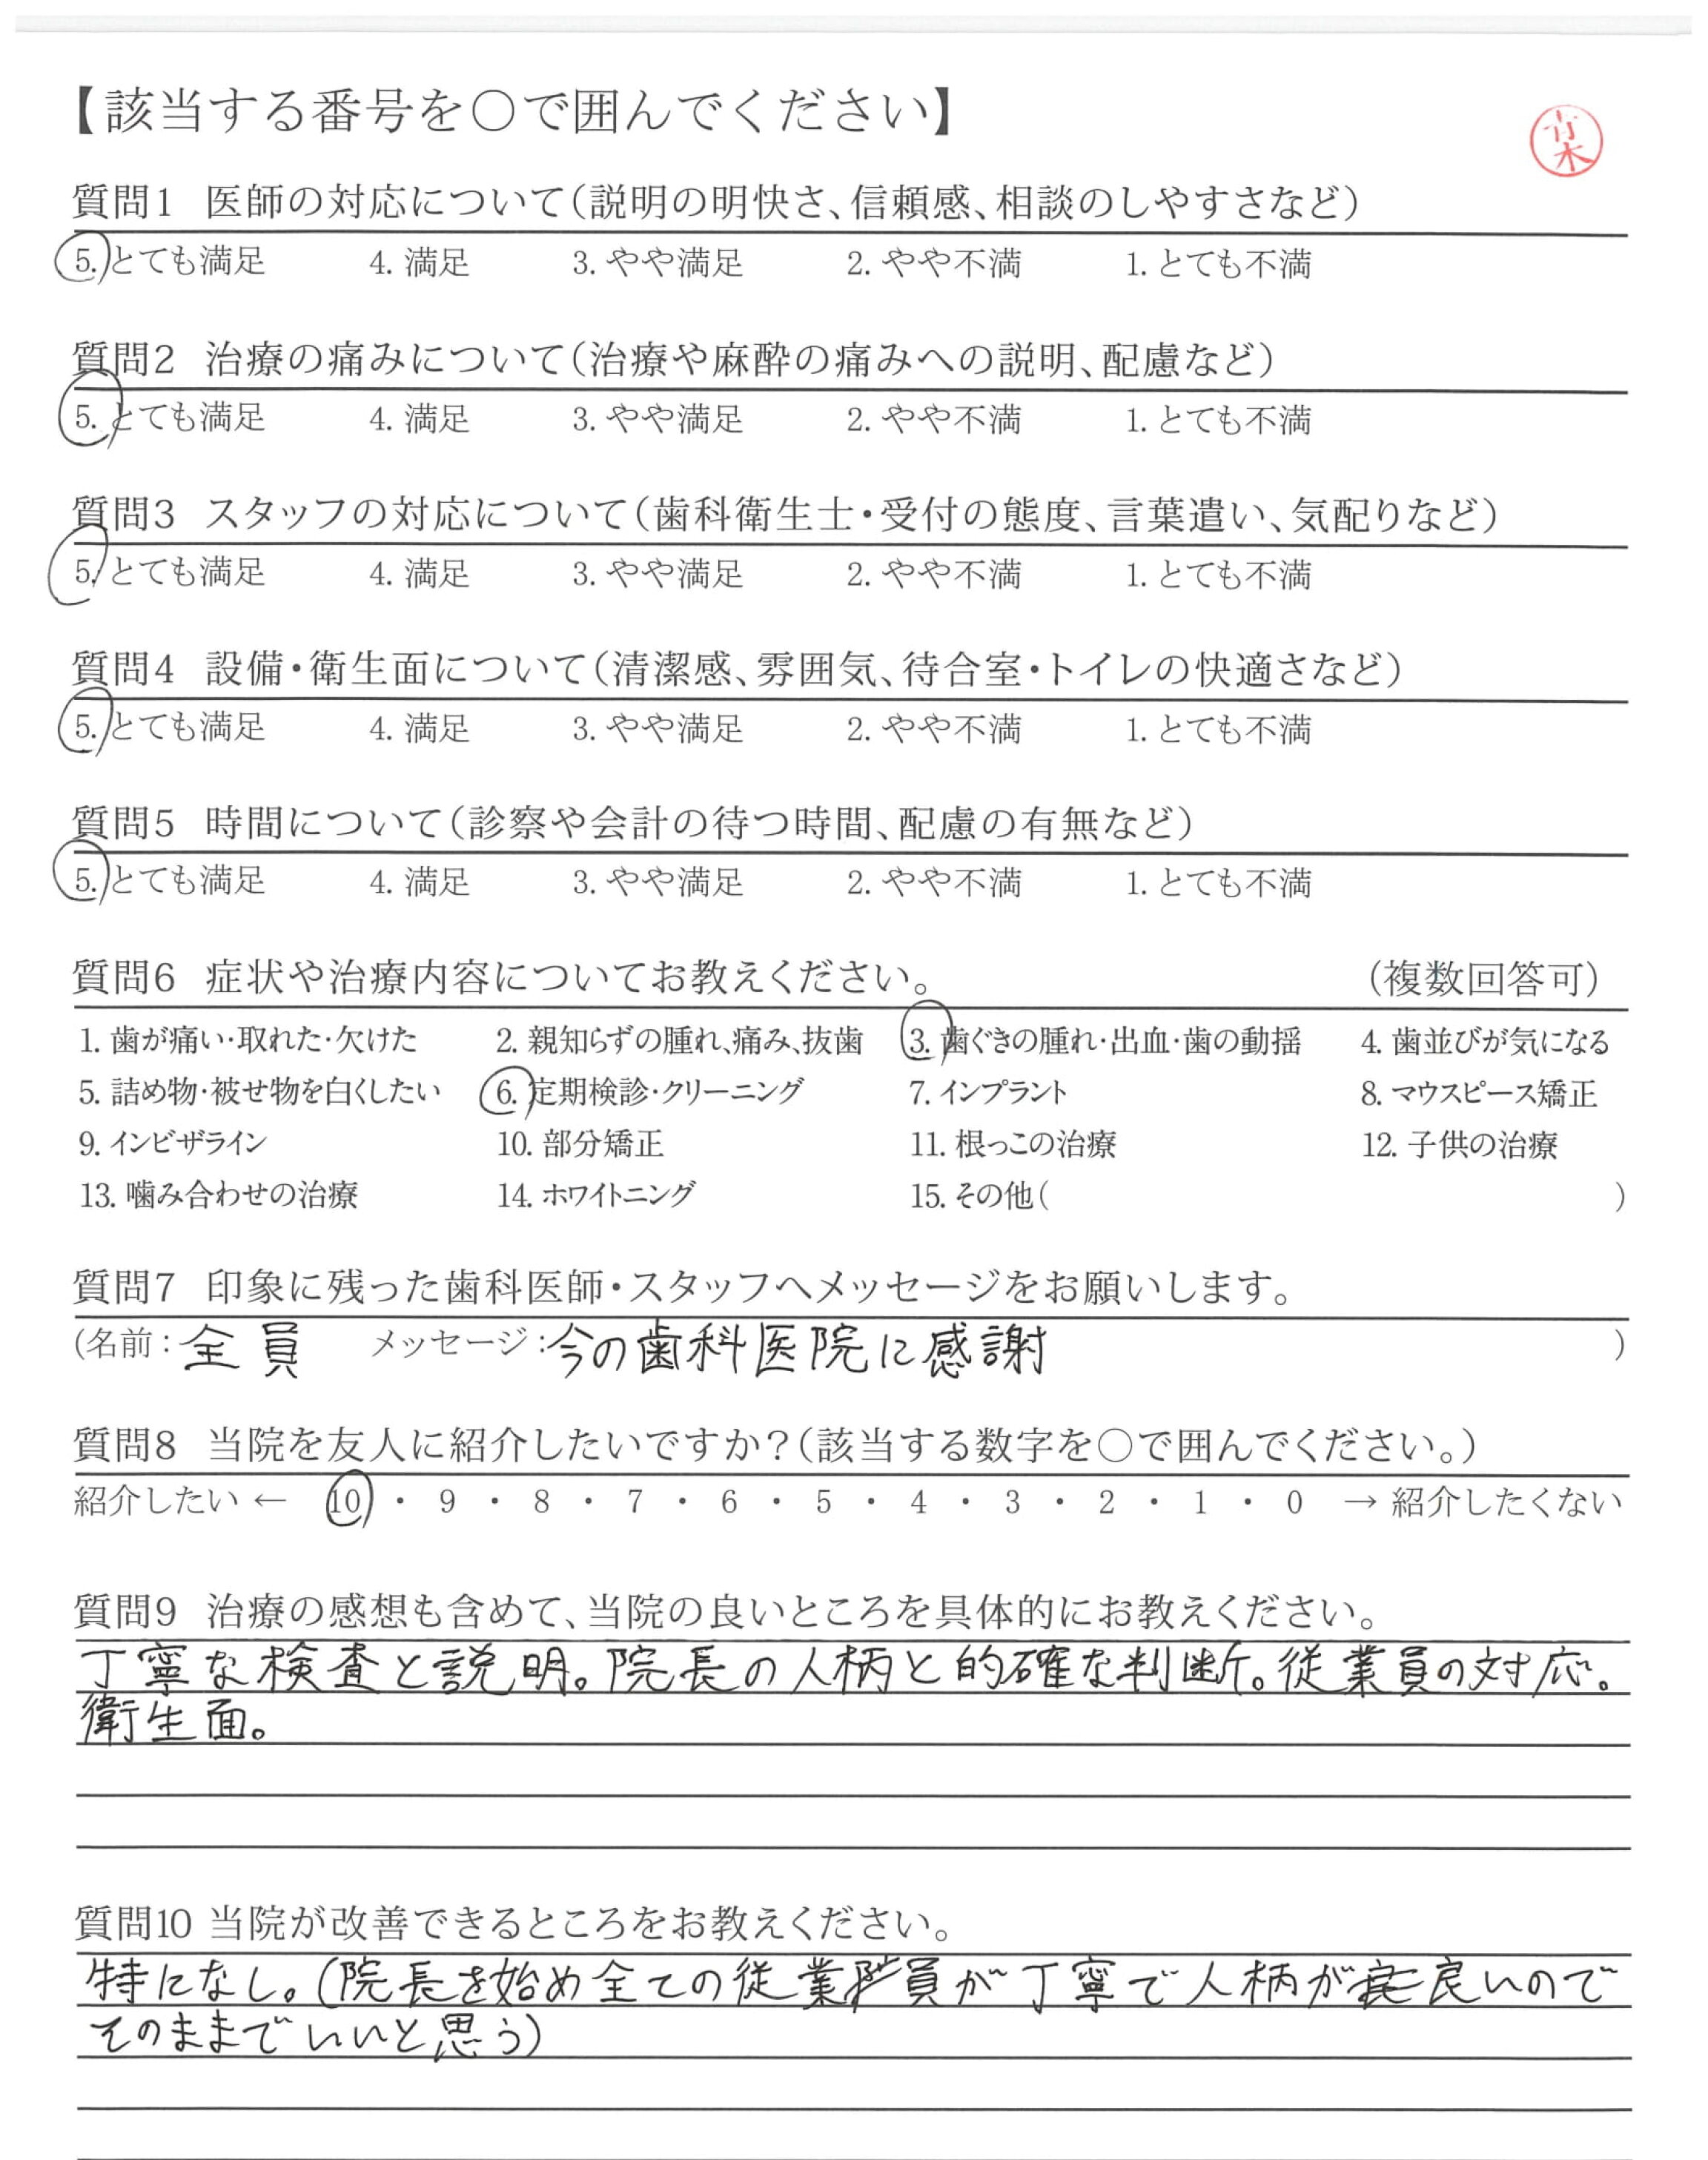 【該当する番号を○で囲んでください】
青木
質問1 医師の対応について(説明の明快さ、信頼感、相談のしやすさなど)
5. とても満足 4. 満足 3. やや満足 2. やや不満 1. とても不満
質問2 治療の痛みについて(治療や麻酔の痛みへの説明、配慮など)
5. とても満足 4. 満足 3. やや満足 2. やや不満 1. とても不満
質問3 スタッフの対応について(歯科衛生士・受付の態度、言葉遣い、気配りなど)
5. とても満足 4. 満足 3. やや満足 2. やや不満 1. とても不満
質問4 設備・衛生面について(清潔感、雰囲気、待合室・トイレの快適さなど)
5. とても満足 4. 満足 3. やや満足 2. やや不満 1. とても不満
質問5 時間について(診察や会計の待つ時間、配慮の有無など)
5. とても満足 4. 満足 3. やや満足 2. やや不満 1. とても不満
質問6 症状や治療内容についてお教えください。 (複数回答可)
1. 歯が痛い・取れた・欠けた 2. 親知らずの腫れ、痛み、抜歯 3. 歯ぐきの腫れ・出血・歯の動揺 4. 歯並びが気になる
5. 詰め物・被せ物を白くしたい 6. 定期検診・クリーニング 7. インプラント 8. マウスピース矯正
9. インビザライン 10. 部分矯正 11. 根っこの治療 12. 子供の治療
13. 噛み合わせの治療 14. ホワイトニング 15. その他( )
質問7 印象に残った歯科医師・スタッフへメッセージをお願いします。
(名前:全員 メッセージ:今の歯科医院に感謝 )
質問8 当院を友人に紹介したいですか?(該当する数字を○で囲んでください。)
紹介したい ← 10 ・ 9 ・ 8 ・ 7 ・ 6 ・ 5 ・ 4 ・ 3 ・ 2 ・ 1 ・ 0 → 紹介したくない
質問9 治療の感想も含めて、当院の良いところを具体的にお教えください。
丁寧な検査と説明。院長の人柄と的確な判断。従業員の対応。
衛生面。
質問10 当院が改善できるところをお教えください。
特になし。(院長を始め全ての従業員が丁寧で人柄が良いので
そのままでいいと思う)